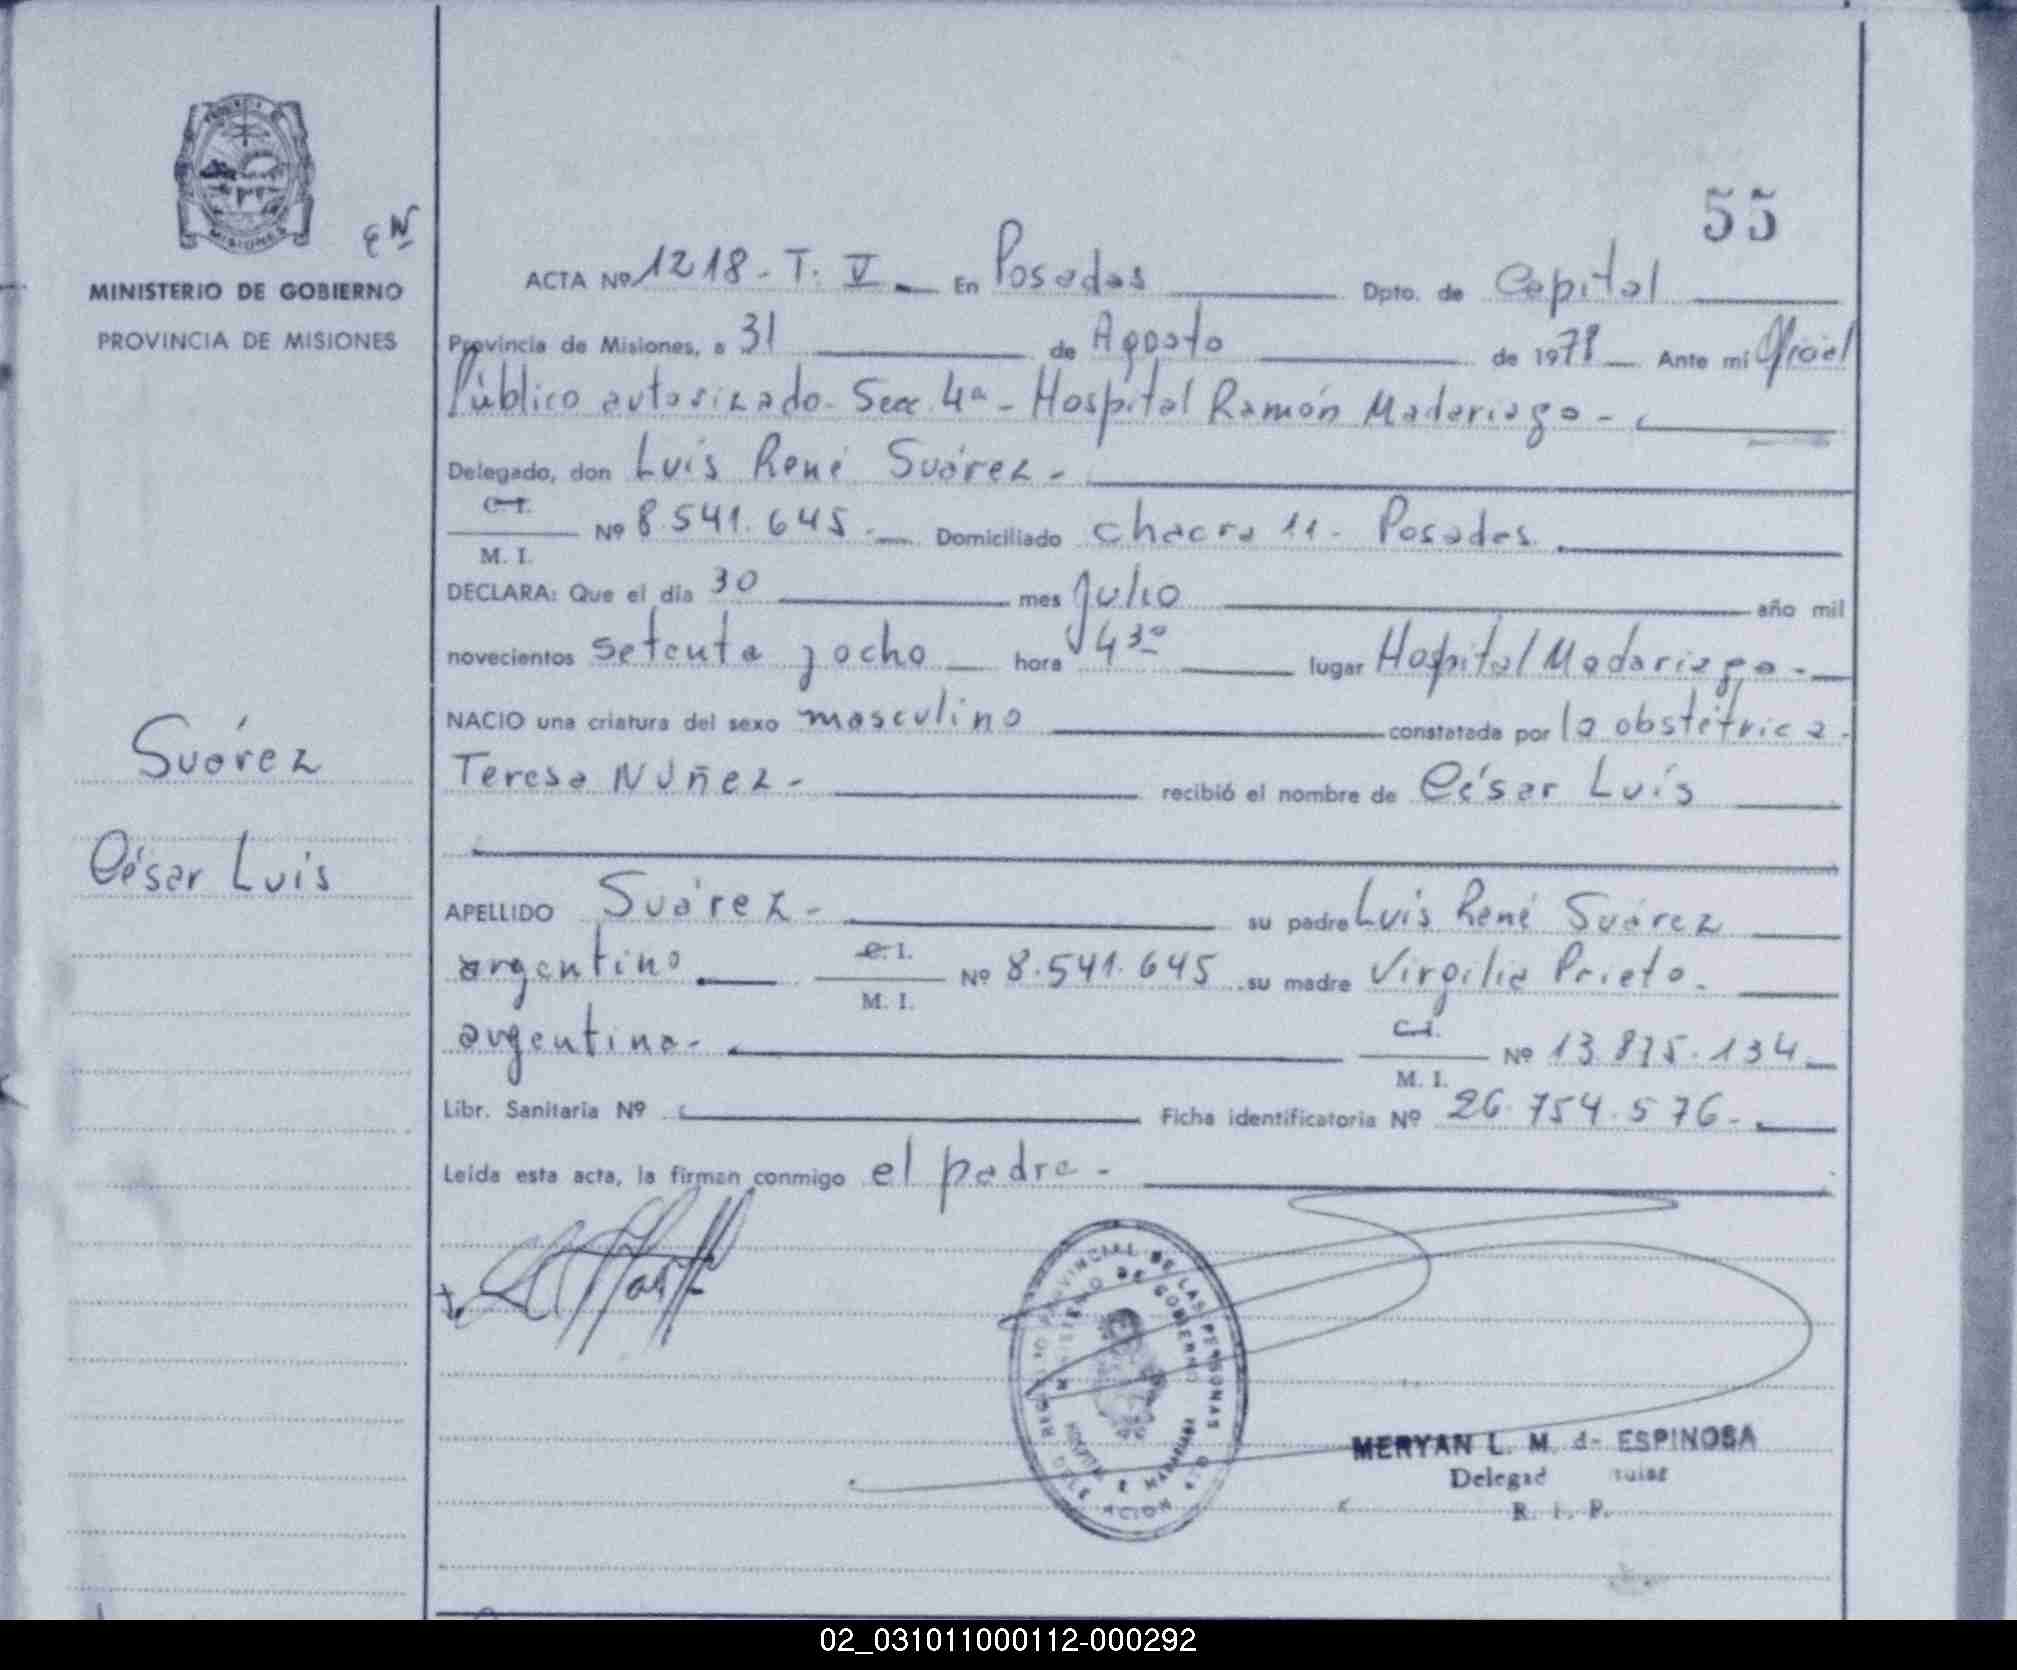 55
MINISTERIO DE GOBIERNO
PROVINCIA DE MISIONES
MISIONES
ACTA Nº 1218 - T. V - En Posadas Dpto. de Capital
Provincia de Misiones, a 31 de Agosto de 1978 Ante mí Oficial
Público autorizado - Secc. 4ª - Hospital Ramón Madariaga -
Delegado, don Luis René Suárez -
C. I.
M. I. Nº 8.541.645 - Domiciliado Chacra 11 - Posadas.
DECLARA: Que el día 30 mes Julio año mil
novecientos setenta y ocho hora 4 30 lugar Hospital Madariaga -
NACIO una criatura del sexo masculino constatada por la obstétrica -
Teresa Núñez - recibió el nombre de César Luis
Suárez
César Luis
APELLIDO Suárez - su padre Luis René Suárez
argentino C. I.
M. I. Nº 8.541.645 su madre Virgilia Prieto -
argentina - C. I.
M. I. Nº 13.875.134
Libr. Sanitaria Nº Ficha identificatoria Nº 26.754.576 -
Leída esta acta, la firman conmigo el padre -
REGISTRO PROVINCIAL DE LAS PERSONAS
MINISTERIO DE GOBIERNO
MERYAN L. M. de ESPINOSA
R. P.
02_031011000112-000292